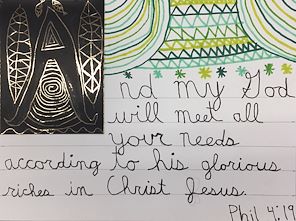 And my God
will meet all
your needs
according to his glorious
riches in Christ Jesus.
Phil 4:19